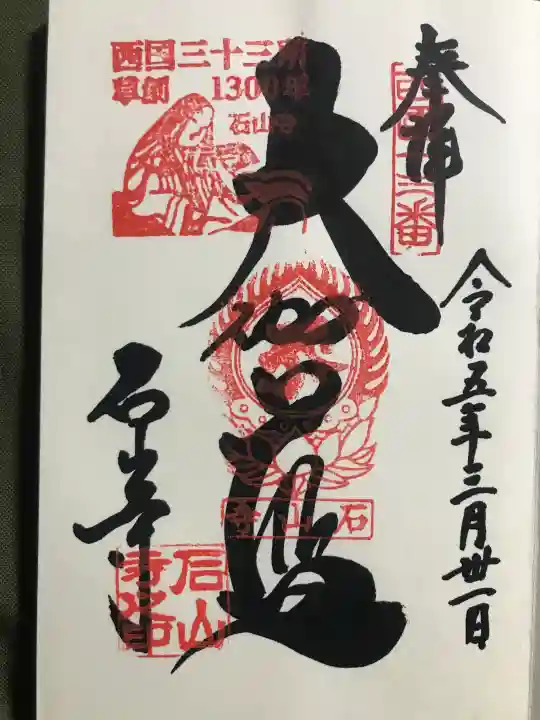 奉拝
西国十三番
令和五年三月卅一日
大伽藍
西国三十三所
草創 1300年
石山寺
石山寺
石山寺
石山寺之印